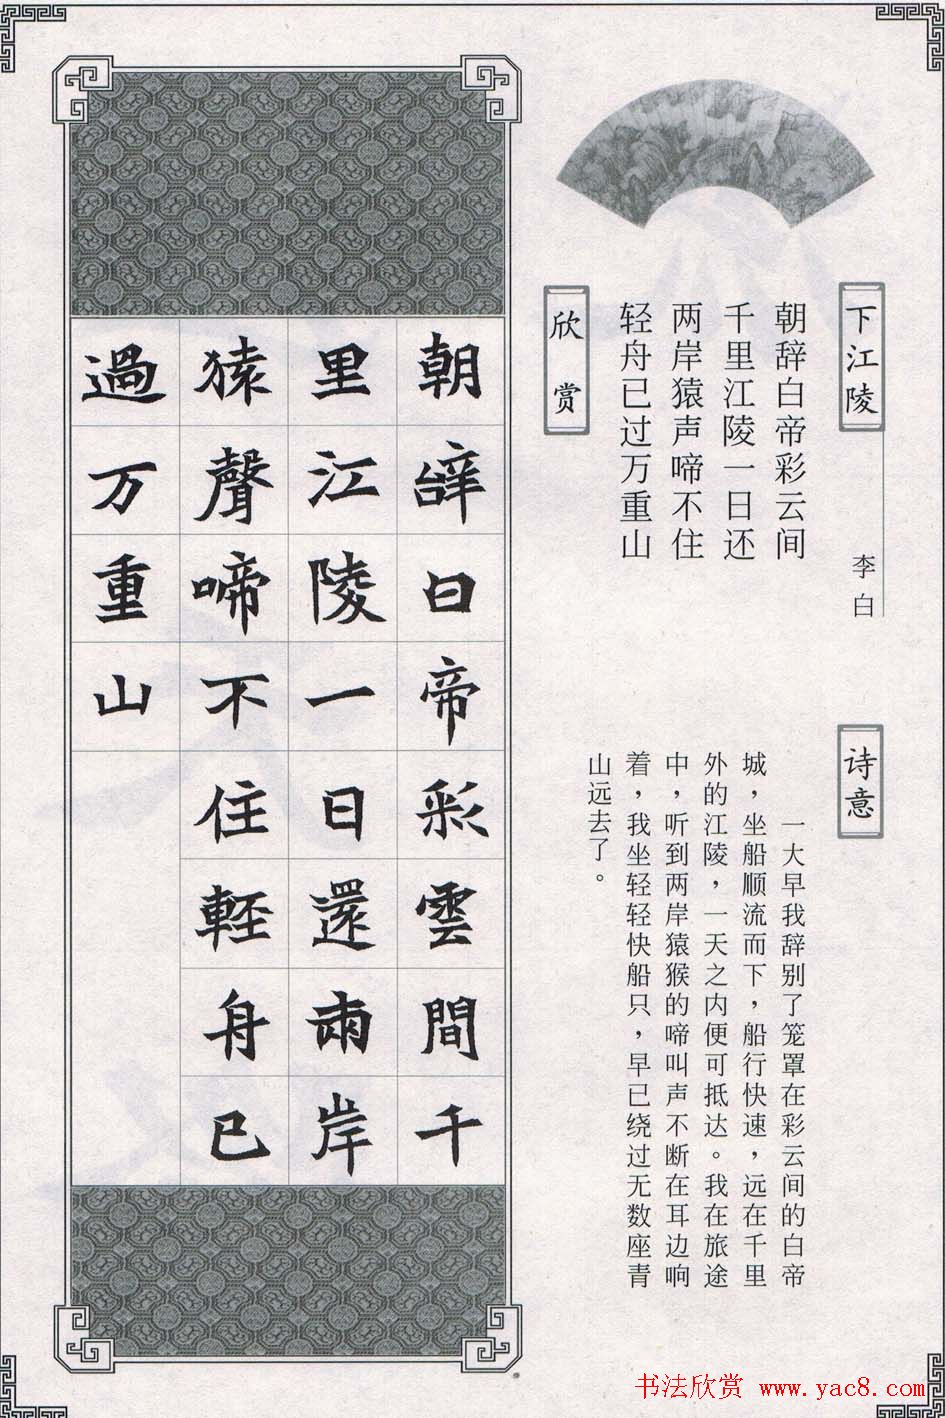 下江陵
李白
朝辞白帝彩云间
千里江陵一日还
两岸猿声啼不住
轻舟已过万重山
诗意
一大早我辞别了笼罩在彩云间的白帝
城，坐船顺流而下，船行快速，远在千里
外的江陵，一天之内便可抵达。我在旅途
中，听到两岸猿猴的啼叫声不断在耳边响
着，我坐轻轻快船只，早已绕过无数座青
山远去了。
欣赏
朝辭白帝彩雲間千
里江陵一日還兩岸
猿聲啼不住輕舟已
過万重山
书法欣赏 www.yac8.com